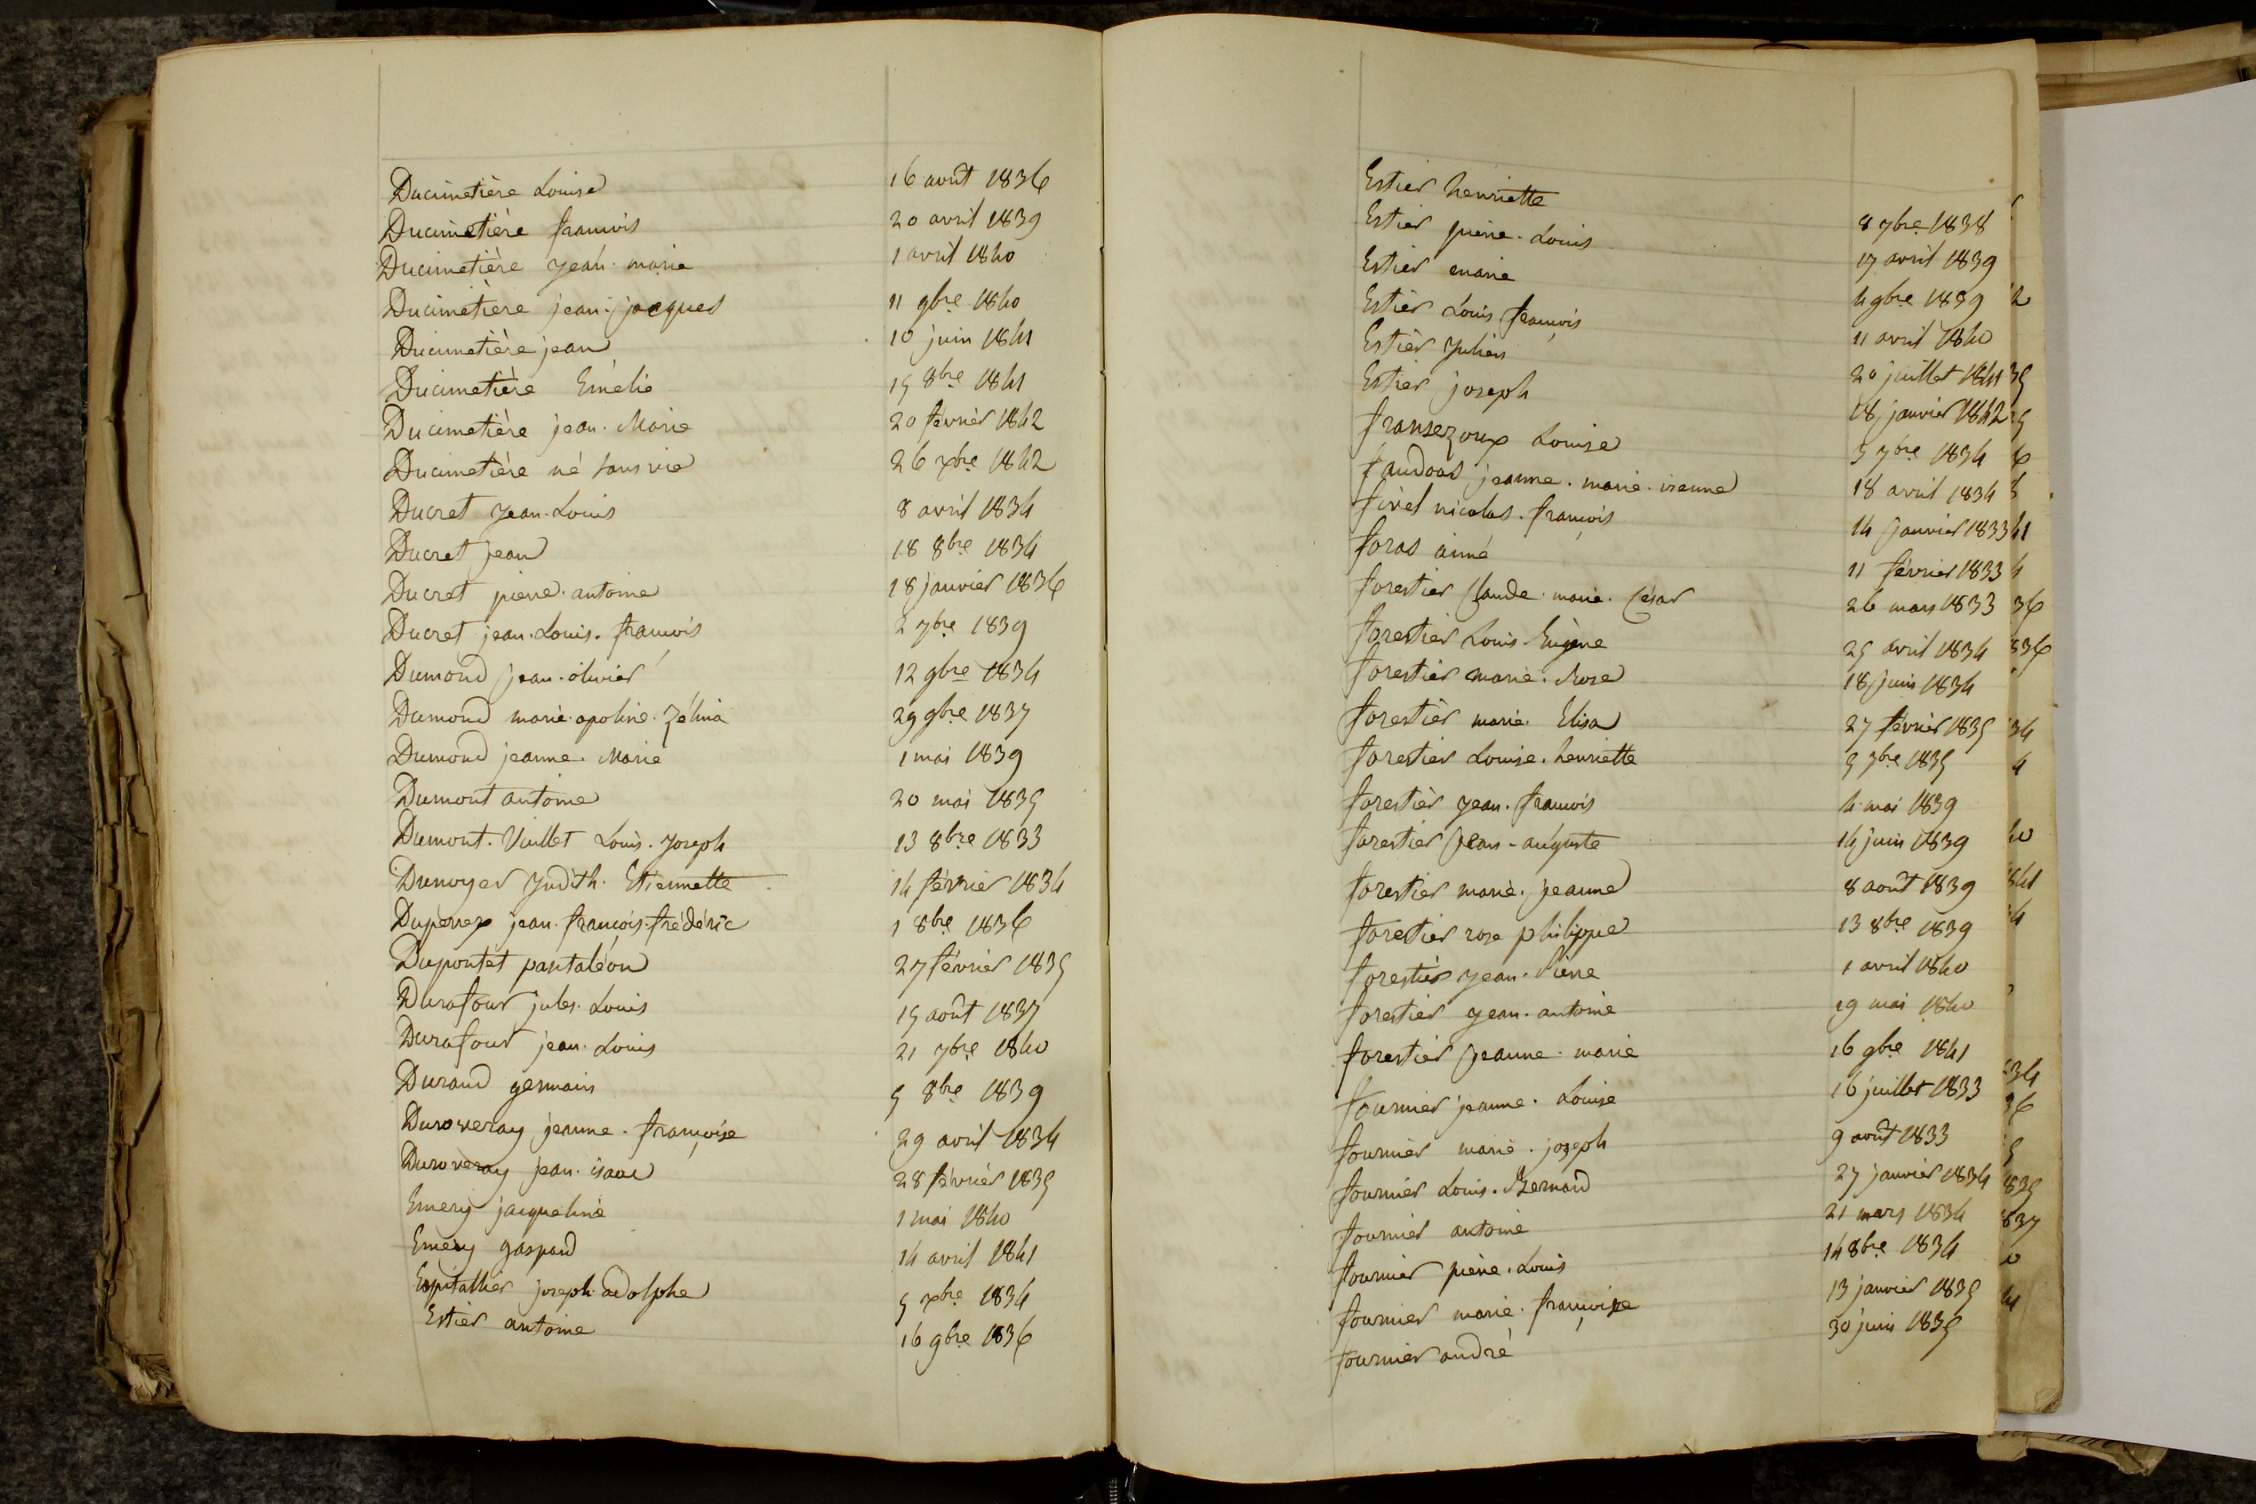 Ducimetière Louise 16 août 1836
Ducimetière françois 20 avril 1839
Ducimetière jean. marie 1 avril 1840
Ducimetière jean. jacques 11 9bre 1840
Ducimetière jean 10 juin 1841
Ducimetière Emélie 15 8bre 1841
Ducimetière jean. Marie 20 février 1842
Ducimetière né sans vie 26 xbre 1842
Ducret jean. Louis 8 avril 1834
Ducret jean 18 8bre 1834
Ducret pierre. antoine 18 janvier 1836
Ducret jean. Louis. françois 2 7bre 1839
Dumond jean. olivier 12 9bre 1834
Dumond marie. apoline. Zélina 29 9bre 1837
Dumond jeanne. Marie 1 mai 1839
Dumont antoine 20 mai 1835
Dumont. Vuillet Louis. joseph 13 8bre 1833
Dunoyer judith. Etiennette 14 février 1834
Duperrex jean. françois. frédéric 1 8bre 1836
Dupontet pantaléon 27 février 1835
Durafour jules. Louis 15 août 1837
Durafour jean. Louis 21 7bre 1840
Durand germain 5 8bre 1839
Duroveray jeanne. françoise 29 avril 1834
Duroveray jean. isaac 28 février 1835
Emery jacqueline 1 mai 1840
Emery gaspard 14 avril 1841
Espitallier joseph. adolphe 5 xbre 1834
Estier antoine 16 9bre 1836
Estier henriette 8 7bre 1838
Estier pierre. Louis 17 avril 1839
Estier marie 4 9bre 1839
Estier Louis françois 11 avril 1840
Estier Julien 20 juillet 1841
Estier joseph 18 janvier 1842
fransezoux Louise 5 7bre 1834
faudoas jeanne. marie. 18 avril 1834
nicolas. françois 14 janvier 1833
foras aimé 11 février 1833
forestier Claude. marie. César 26 mars 1833
forestier Louis Eugène 25 avril 1834
forestier marie. Rose 18 juin 1834
forestier marie. Elisa 27 février 1835
forestier Louise. henriette 5 7bre 1835
forestier jean. françois 4 mai 1839
forestier jean - auguste 14 juin 1839
forestier marie. jeanne 8 août 1839
forestier rose philippe 13 8bre 1839
forestier jean. Pierre 1 avril 1840
forestier jean. antoine 19 mai 1840
forestier jeanne. marie 16 9bre 1841
fournier jeanne. Louise 16 juillet 1833
fournier marie. joseph 9 août 1833
fournier Louis. Bernard 27 janvier 1834
fournier antoine 21 mars 1834
fournier pierre. Louis 14 8bre 1834
fournier marie. françoise 13 janvier 1835
fournier andré 30 juin 1835